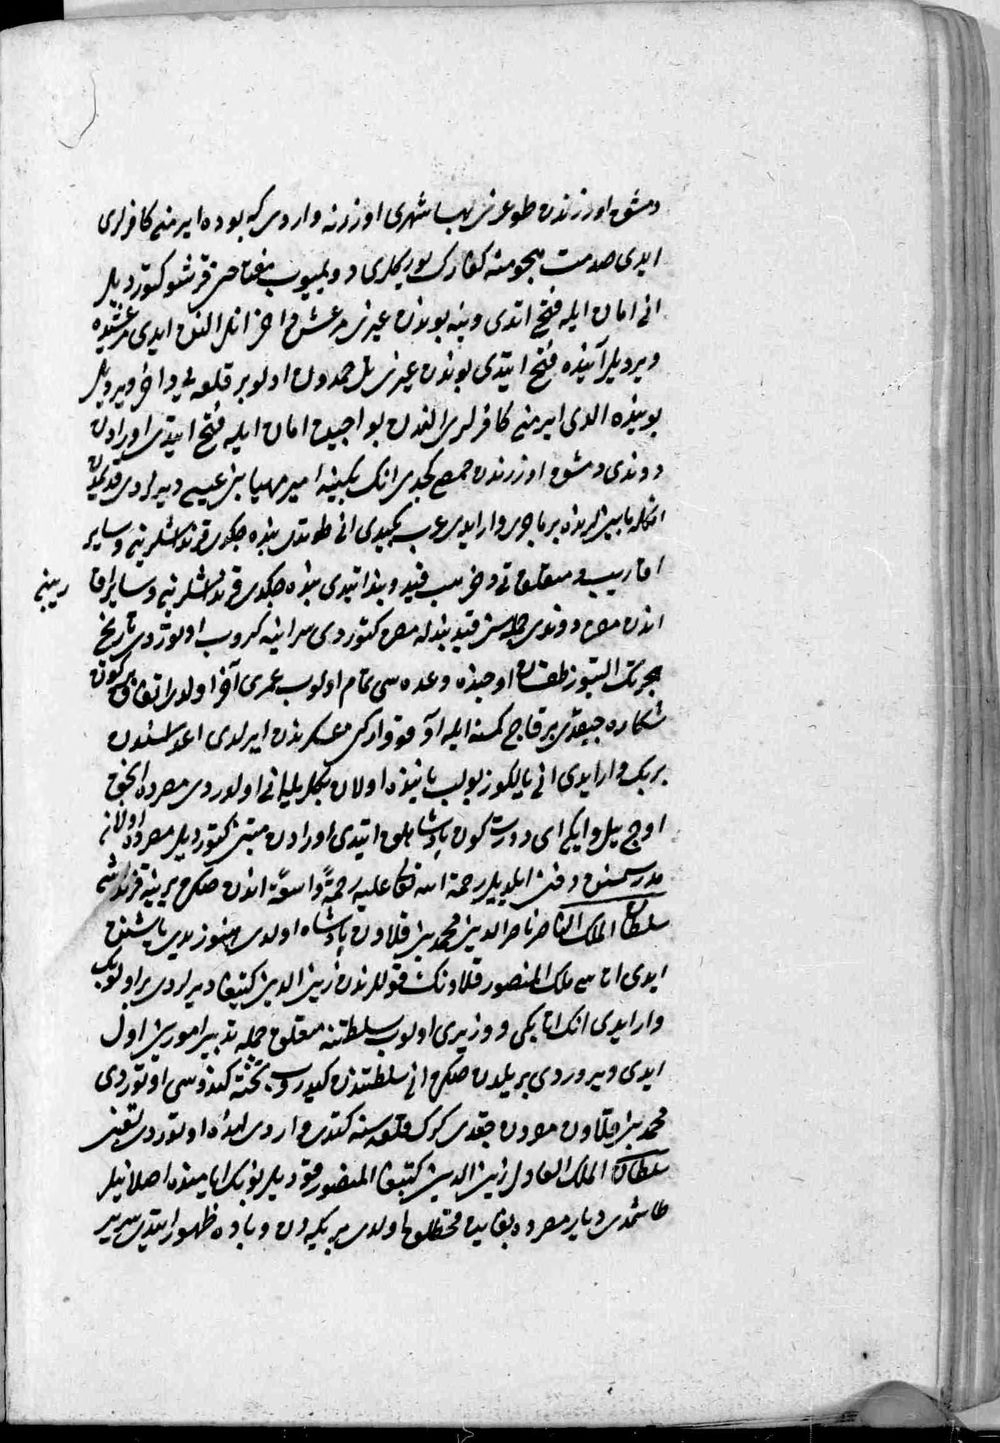 دمشق اوزرندن طوغری بهسا شهری اوزرنه واردی که بو ده ایرمنی کافرلری
ایدی صدمت هجومنه کفارک یورکلری دویمیوب مفتاحن قرشو کتوردیلر
انی امان ایله فتح اتدی وینه بوندن غیری مرعش داخی انلر النده ایدی مرعشیده
ویردیلر آنیده فتح ایتدی بوندن غیری تل حمدون ادلو بر قلعه یی داخی ویردیلر
بونیده الدی ایرمنی کافرلری الندن بو اجیق امان ایله فتح ایتدی اورادن
دوندی دمشق اوزرندن حمصه کجدی انک بکینه امیر مهنا بن عیسی دیرلردی قدیمدن
انکله مابینلرنده بر ماجرا وار ایدی عرب بکیدی انی طوتدی
اقاریب و متعلقاتی وخریب قید وبند اتدی جکدی قرنداشلرینی وسایر اقا
ریبنی
اندن مصره دوندی جمله سن قید بندله مصره کتوردی سراینه کروب اولتوردی تاریخ
هجرتک التیوز طقسان اوجنده وعده سی تمام اولوب عمری آخر اولدی اتفاق بر کون
شکاره جیقدی بر قاج کمسنه ایله آو قوارکن عسکرندن ایرلدی اعداسندن
بر بک وار ایدی انی یالکوز بولب یاننده اولان بکلر ایله انی اولدوردی مصرده انجق
اوج ییل وایکی ای دورت کون پادشاهلق ایتدی اورادن میتن کتوردیلر مصرده اولان
مدرسسنده دفن ایلدیلر رحمة الله تعالی علیه رحمةً واسعةً اندن صکره یرینه قرنداشی
سلطان الملک الناصر ناصر الدین محمد بن قلاون پادشاه اولدی هنوز یدی یاشنده
ایدی اتاسی ملک المنصور قلاونک قوللرندن زین الدین کتبغا دیرلردی بر اولو بک
وار ایدی انک اتابکی و وزیری اولوب سلطنته متعلق جمله تدبیر امورین اول
ایدی ویروردی بر ییلدن صکره انی سلطنتدن کیدروب تخته کندوسی اوتوردی
محمد بن قلاون مصردن جقدی کرک قلعه سنه کتدی واردی انده اوتوردی لقبن
سلطان الملک العادل زین الدین کتبغا المنصور قودیلر بونک ایامنده اصلا نیلر
طاشمدی دیار مصرده بغایت قحطلق اولدی بر یکیدن وباده ظهور ایتدی سریر